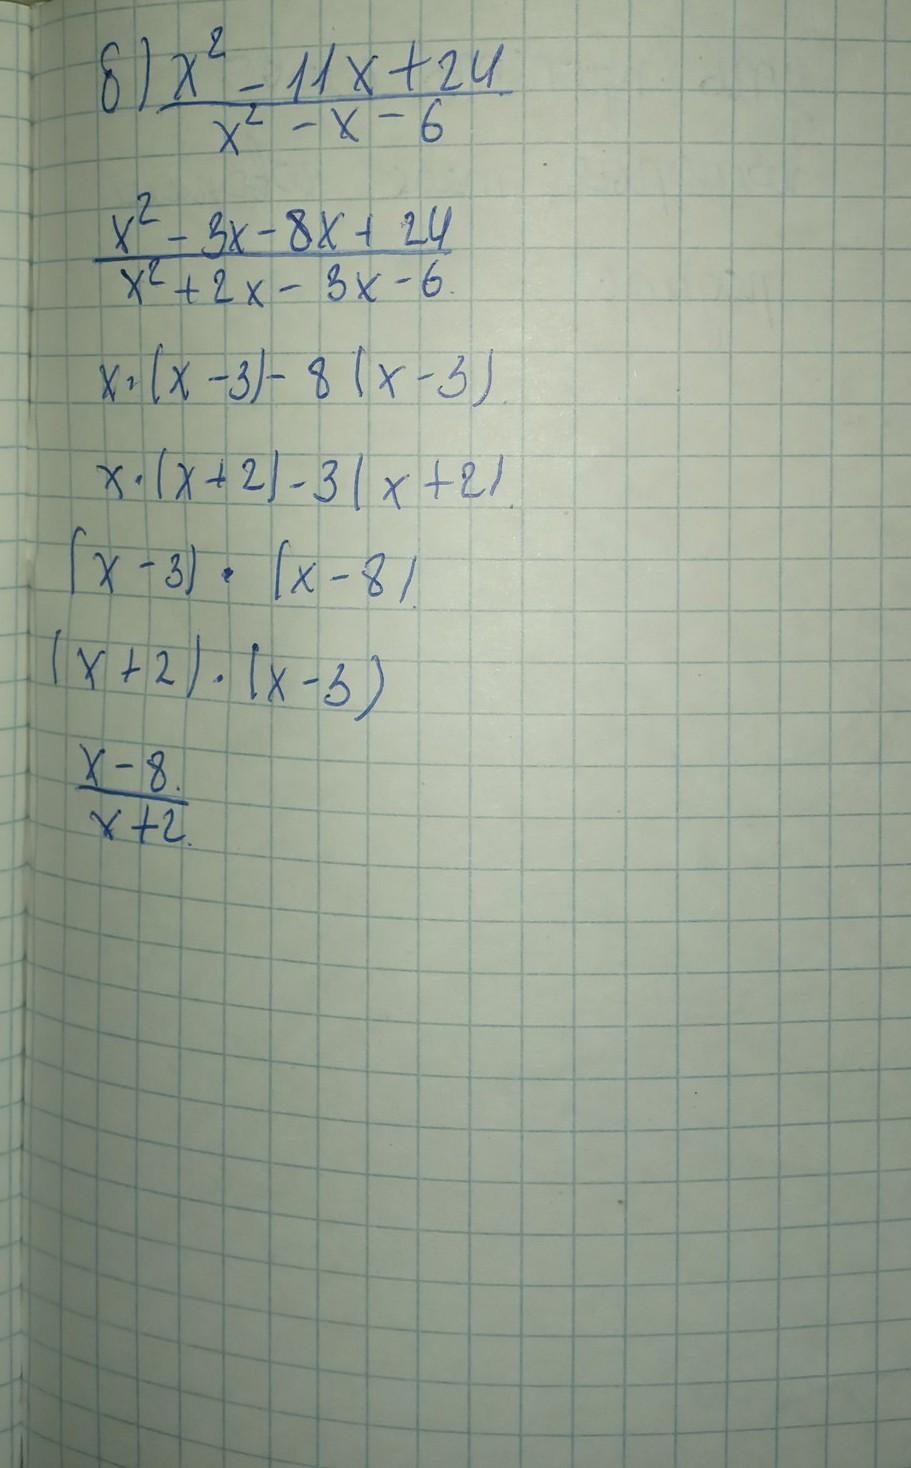 б) x² - 11x + 24
x² - x - 6
x² - 3x - 8x + 24
x² + 2x - 3x - 6.
x·(x - 3) - 8(x - 3).
x·(x + 2) - 3(x + 2)
(x - 3) · (x - 8)
(x + 2) · (x - 3)
x - 8.
x + 2.